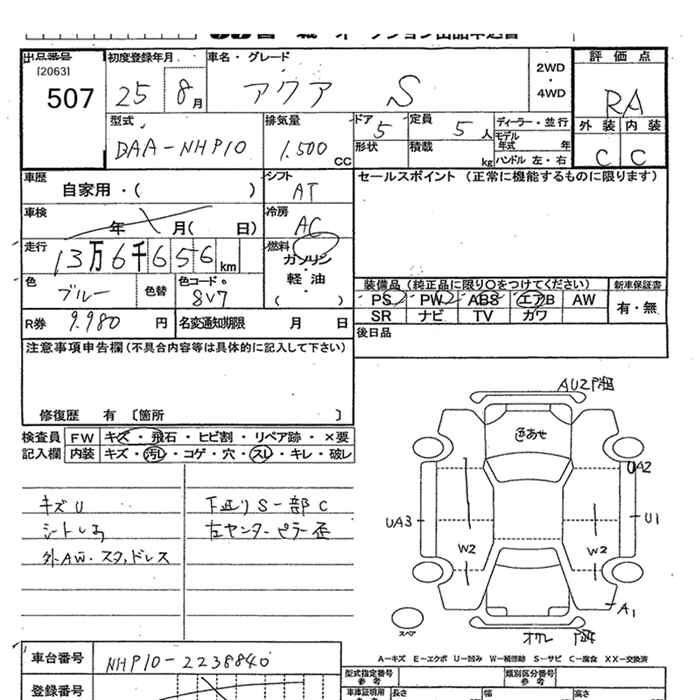 出品番号 初度登録年月 車名・グレード
[2063] 2WD
・
4WD 評価点
507 25 8月 アクア S RA
型式 排気量 ドア 定員 ディーラー・並行 外装 内装
DAA-NHP10 1.500CC 5 5人 モデル年式 年 C C
形状 積載 kg ハンドル 左・右
車歴 シフト セールスポイント（正常に機能するものに限ります）
自家用・( ) AT
車検 冷房
年 月( 日) AC
走行 燃料
13万6千656km ガソリン
・
軽油
( )
色 色替 色コード
ブルー 8V7
装備品（純正品に限り○をつけてください） 新車保証書
PS PW ABS エアB AW 有・無
SR ナビ TV カワ
R券 9.980円 名変通知期限 月 日
後日品
注意事項申告欄（不具合内容等は具体的に記入して下さい）
修復歴 有 〔箇所 〕
検査員 FW キズ・飛石・ヒビ割・リペア跡・×要
記入欄 内装 キズ・汚レ・コゲ・穴・スレ・キレ・破レ
キズU 下廻りS一部C
外AW・スタッドレス
色あせ
UA2
UA3 U1
W2 W2
A1
スペア
A―キズ E―エクボ U―凹み W―補修跡 S―サビ C―腐食 XX―交換済
車台番号 NHP10-2238840
型式指定番号 類別区分番号
参考 参考
登録番号 車庫証明用 長さ 幅 高さ